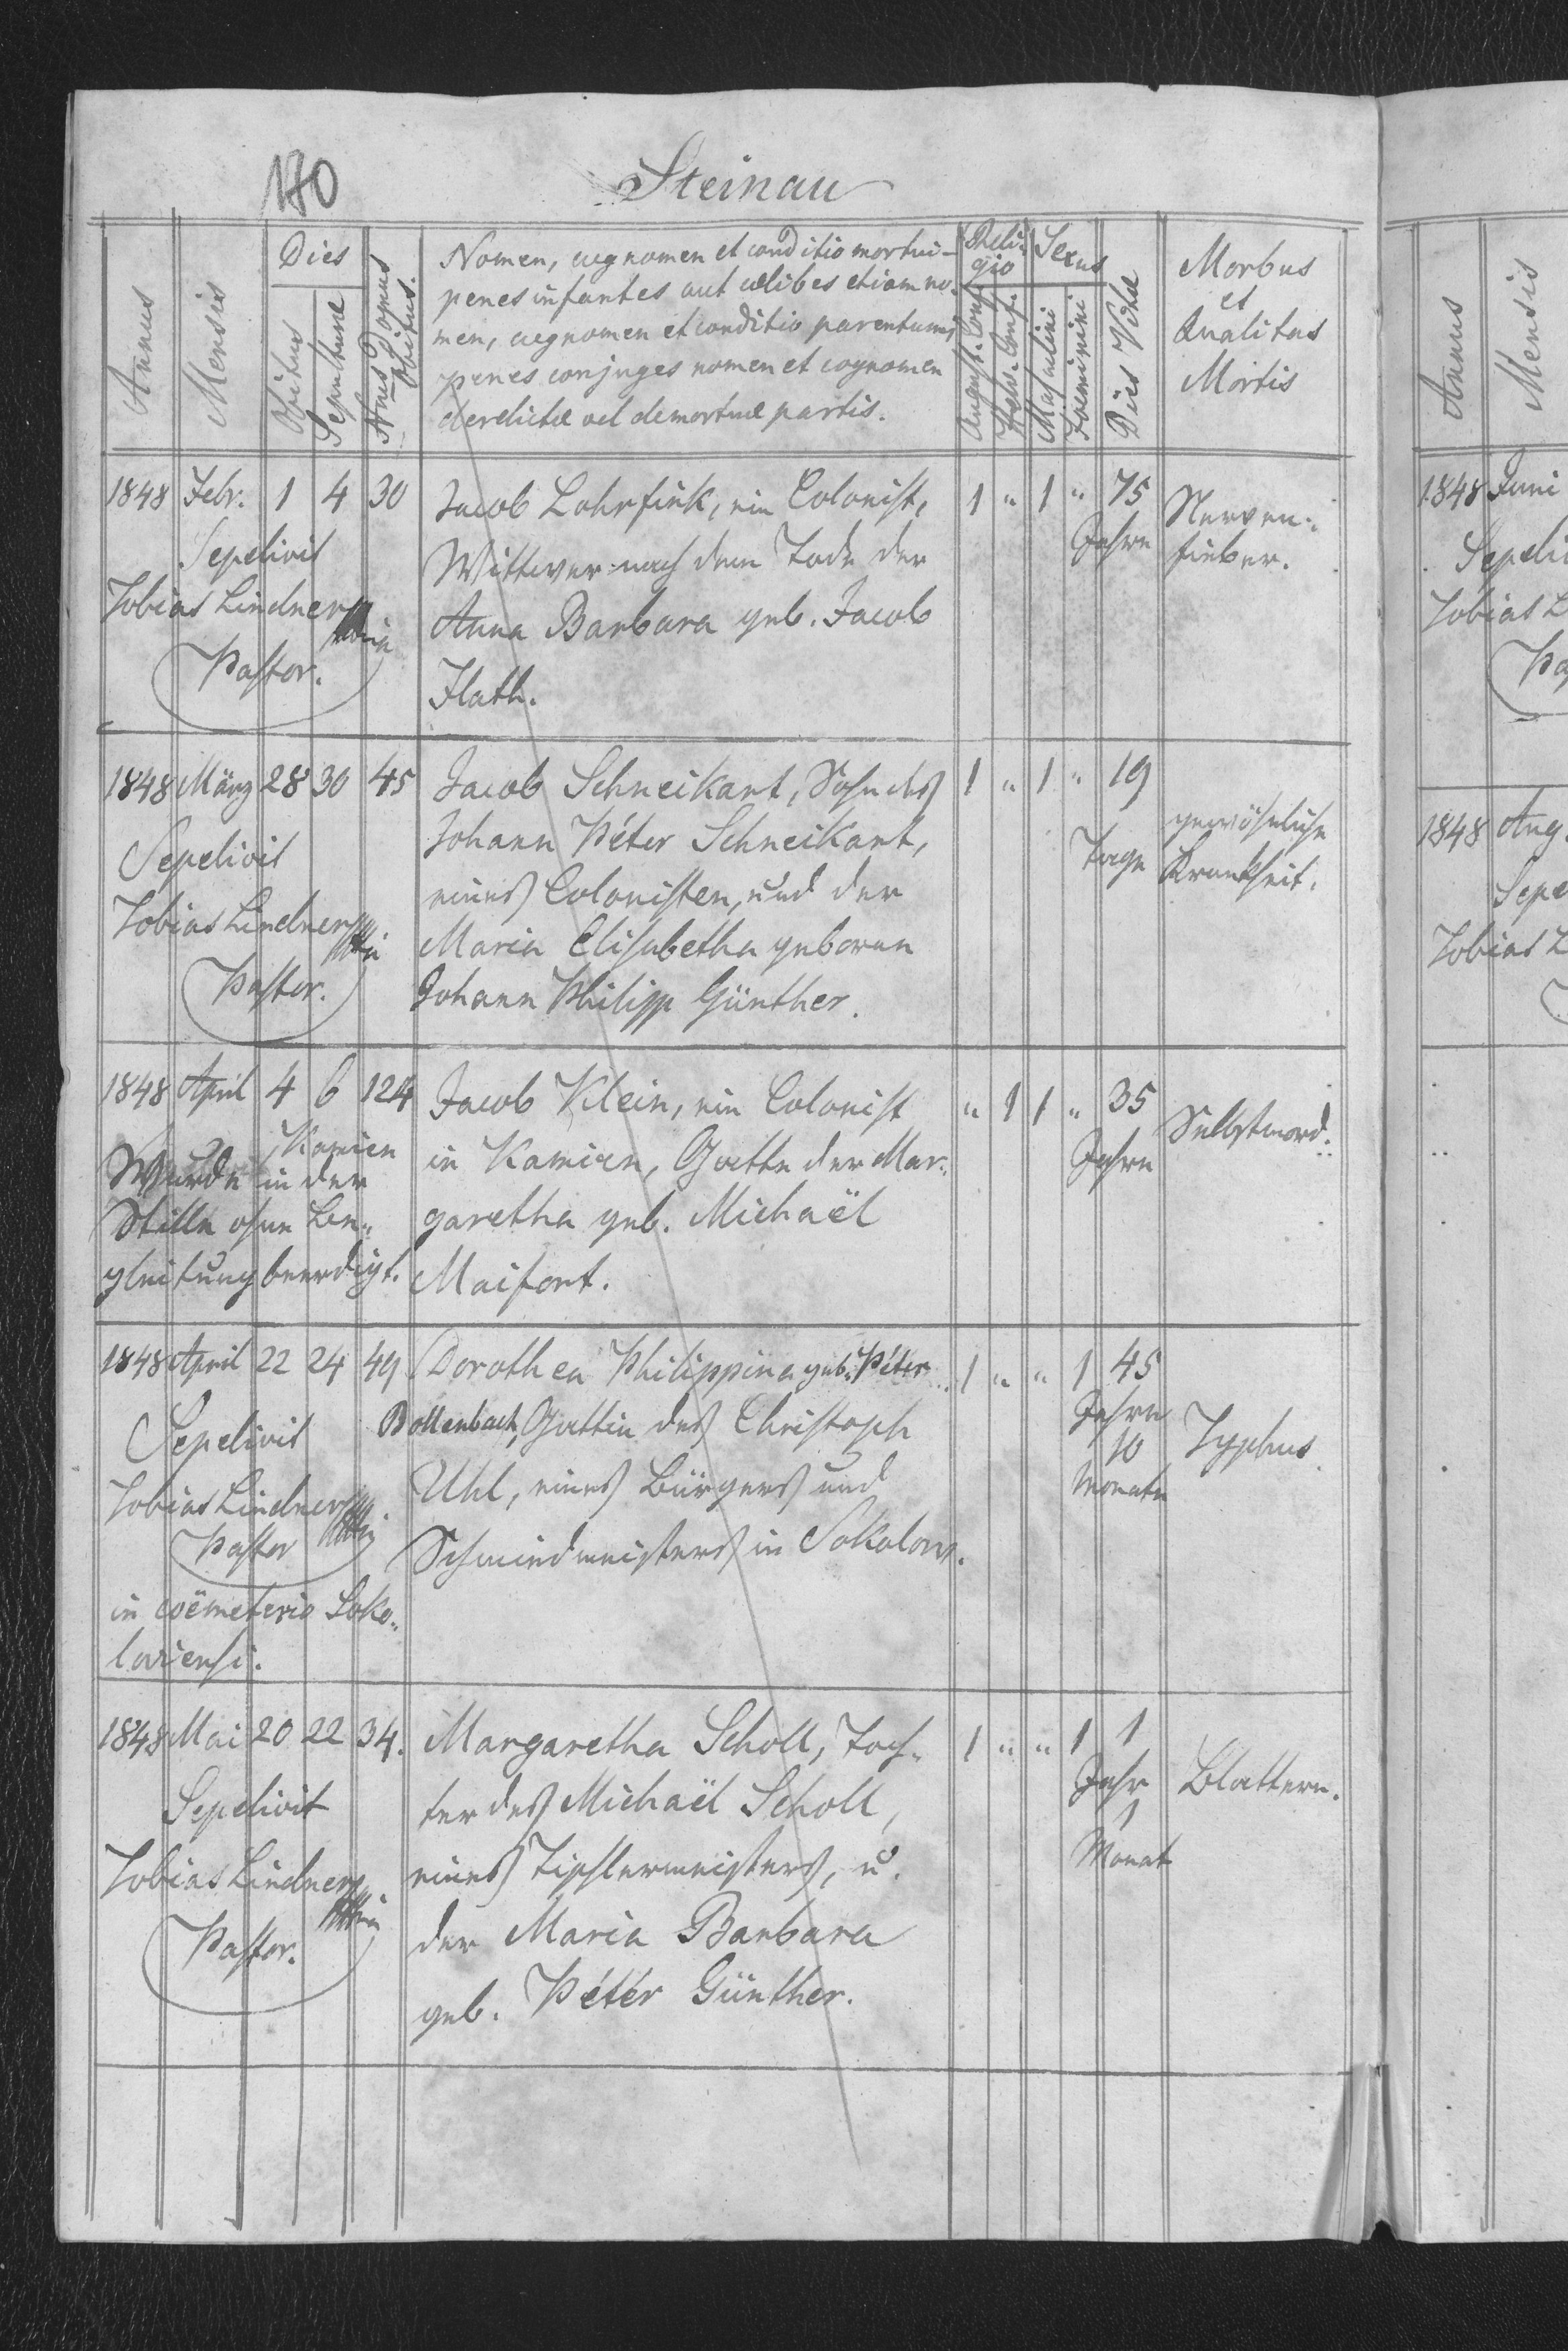 Steinau
170
Annus
Mensis
Dies
Obitus
Sepulturæ
Nrus Domus Obitus.
Nomen, cognomen et conditio mortui -
penes infantes aut cælibes etiam no-
men, cognomen et conditio parentum;
penes conjuges nomen et cognomen
derelictæ vel demortuæ partis.
Reli-
gio
August. Conf.
Helv. Conf.
Sexus
Masculini
Foeminini
Dies Vitæ
Morbus
et
Qualitas
Mortis
1848 Febr. 1 4 30 Jacob Lohrfink, ein Colonist, 1 " 1 " 75 Nerven-
Sepelivit Wittwer nach dem Tode der Jahre fieber.
Tobias Lindner Anna Barbara geb. Jacob
Pastor. Flath.
1848 März 28 30 45 Jacob Schneikart, Sohn des 1 " 1 " 19
Sepelivit Johann Péter Schneikart, Tage gewöhnliche
eines Colonisten, und der Krankheit.
Tobias Lindner Maria Elisabetha geborene
Pastor. Johann Philipp Günther.
1848 April 4 6 124 Jacob Klein, ein Colonist " 1 1 " 35 Selbstmord.
Kamien
Wurde in der in Kamien, Gatte der Mar- Jahre
Stille ohne Be- garetha geb. Michaël
gleitung beerdigt. Maifort.
1848 April 22 24 49 Dorothea Philippina geb. Péter 1 " " 1 45
Sepelivit Bollenbach, Gattin des Christoph Jahre
10 Typhus.
Tobias Lindner Uhl, eines Bürgers und Monate
Pastor Schmiedmeisters in Sokolow.
in coëmeterio Soko-
loviensi.
1848 Mai 20 22 34. Margaretha Scholl, Toch- 1 " " 1 1
Sepelivit ter des Michaël Scholl, Jahr Blattern.
1
Tobias Lindner eines Tischlermeisters, u. Monat
der Maria Barbara
Pastor. geb. Péter Günther.
Annus
Mensis
1848 Juni
Sepeli
Tobias L
Pa
1848 Aug.
Sepe
Tobias L